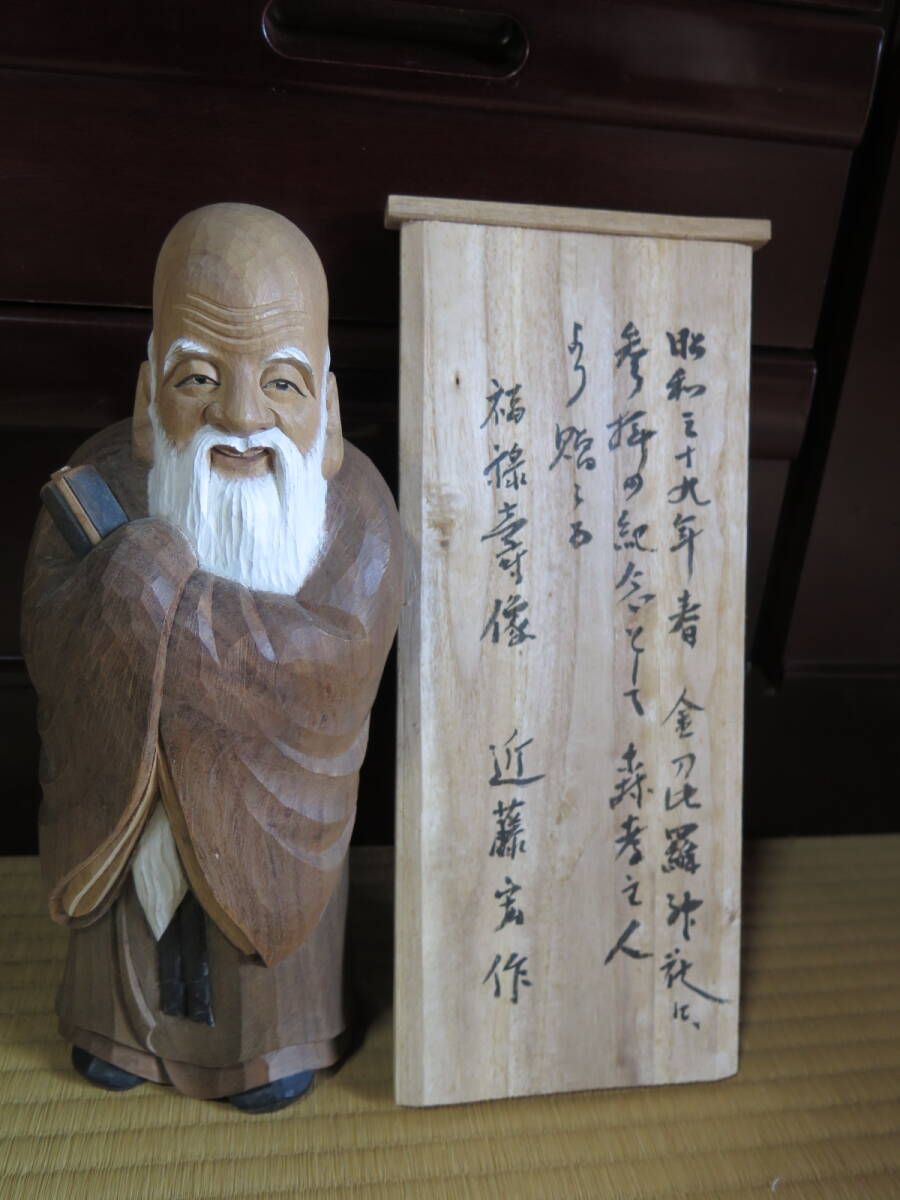 昭和三十九年春 金刀比羅神社に
参拝の紀念として 森孝主人
より贈らる
福禄寿像 近藤宏作